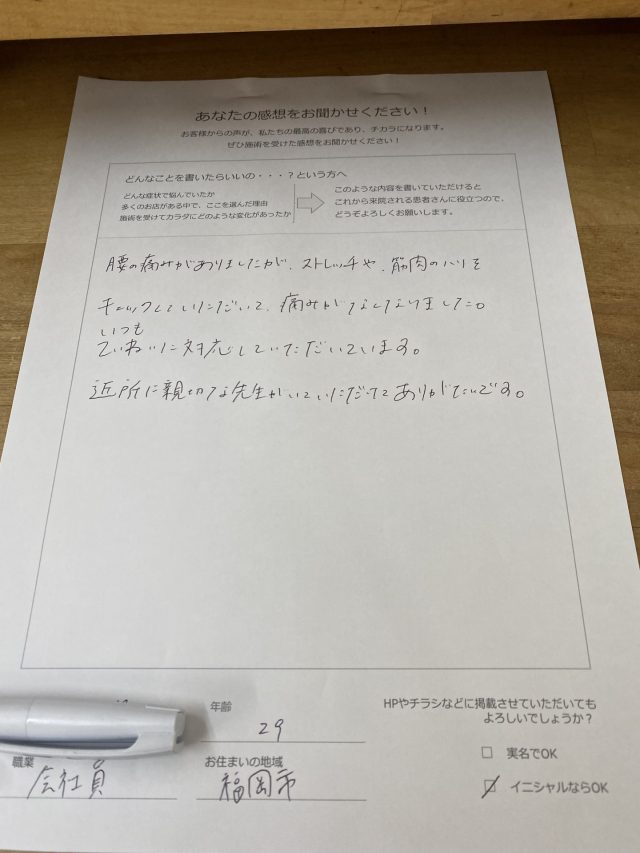 あなたの感想をお聞かせください！
お客様からの声が、私たちの最高の喜びであり、チカラになります。
ぜひ施術を受けた感想をお聞かせください！
どんなことを書いたらいいの・・・？という方へ
どんな症状で悩んでいたか
多くのお店がある中で、ここを選んだ理由
施術を受けてカラダにどのような変化があったか
このような内容を書いていただけると
これから来院される患者さんに役立つので、
どうぞよろしくお願いします。
腰の痛みがありましたが、ストレッチや、筋肉のハリを
チェックしていただいて、痛みがなくなりました。
いつも
ていねいに対応していただいています。
近所に親切な先生がいていただいてありがたいです。
年齢
29
職業
会社員
お住まいの地域
福岡市
HPやチラシなどに掲載させていただいても
よろしいでしょうか？
□ 実名でOK
☑ イニシャルならOK